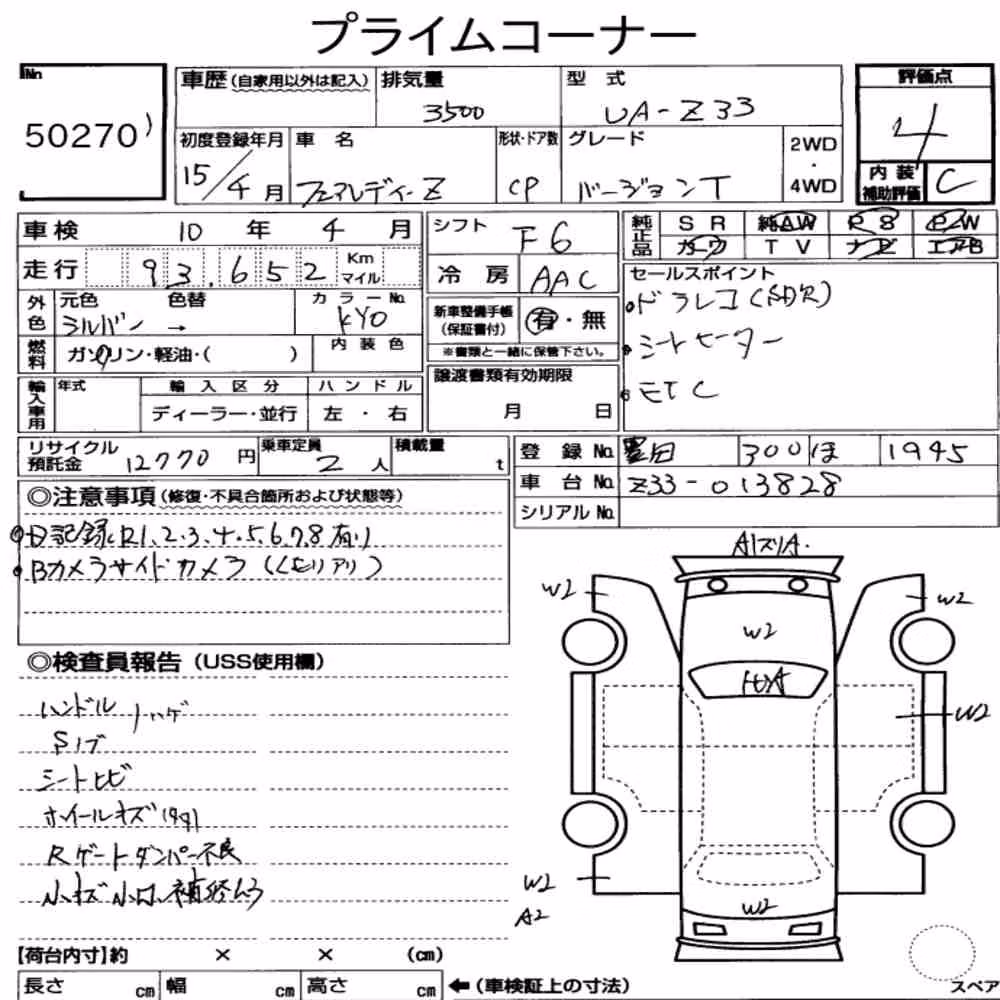 プライムコーナー
No.
50270
車歴(自家用以外は記入)
排気量
3500
型 式
UA-Z33
評価点
4
初度登録年月
15/4月
車 名
フェアレディ-Z
形状・ドア数
CP
グレード
バージョンT
2WD
・
4WD
内 装
補助評価
C
車検 10 年 4 月
シフト F6
純正品
SR 純AW PS PW
カワ TV ナビ エアB
走行 93,652 Km マイル
冷 房 AAC
セールスポイント
ドラレコ(
シートヒーター
ETC
外色
元色 色替 カラーNo.
シルバー → KY0
新車整備手帳
(保証書付)
有・無
※書類と一緒に保管下さい。
燃料
ガソリン・軽油・( )
内 装 色
譲渡書類有効期限
月 日
輸入車用
年式
輸 入 区 分
ハ ン ド ル
ディーラー・並行
左 ・ 右
リサイクル
預託金 12770 円
乗車定員
2 人
積載量
t
登 録 No. 豊田 300 ほ 1945
車 台 No. Z33-013828
シリアル No.
◎注意事項(修復・不具合箇所および状態等)
D記録簿R1.2.3.4.5.6.7.8有り
Bカメラサイドカメラ(くもりアリ)
◎検査員報告(USS使用欄)
ハンドル ハゲ
Sノブ
シートヒビ
ホイールキズ
Rゲートダンパー不良
小キズ小凹、補修ムラ
W2
W2
W2
W2
W2
A2
W2
【荷台内寸】約 × × (cm)
長さ cm 幅 cm 高さ cm
←(車検証上の寸法)
スペア